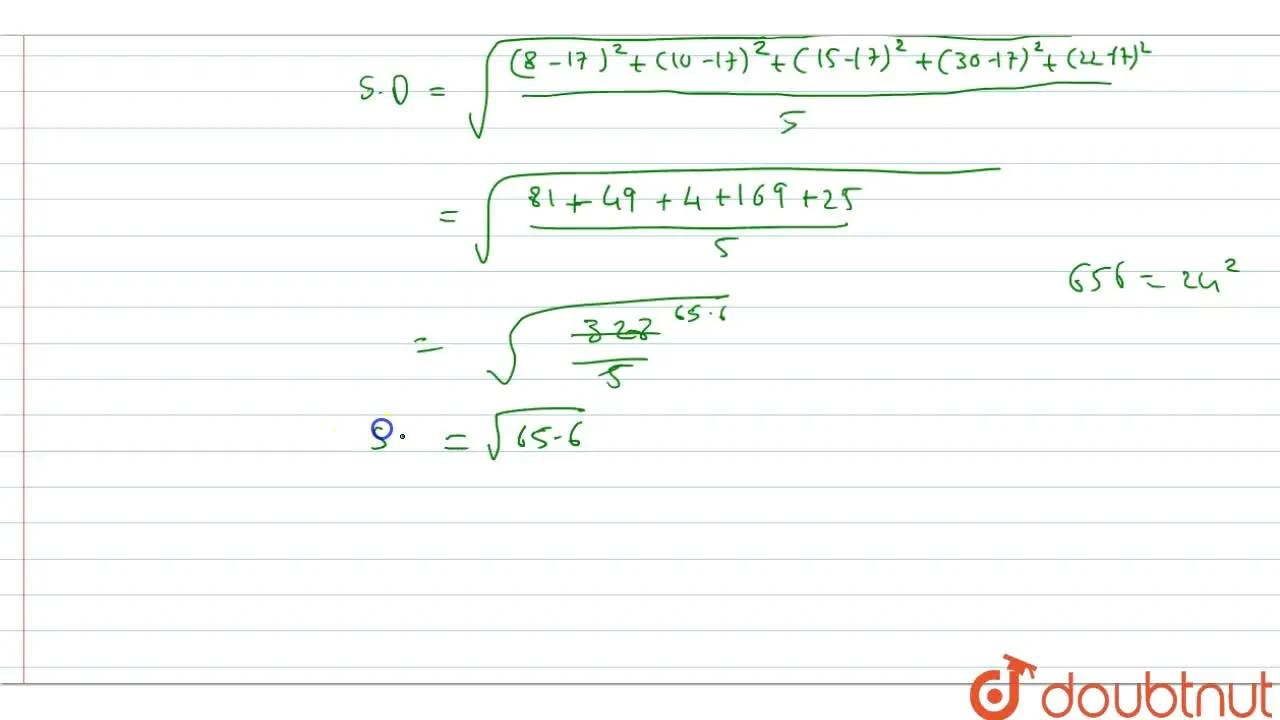 S.D = √((8-17)²+(10-17)²+(15-17)²+(30-17)²+(22-17)²/5)
= √(81+49+4+169+25/5)
656 = 24²
= √(328/5 65.6)
S. = √65.6
doubtnut